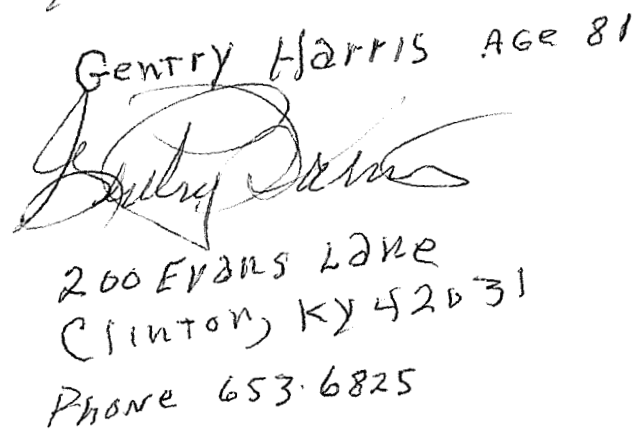 Gentry Harris AGe 81
Gentry Harris
200 Evans Lane
Clinton, KY 42031
Phone 653-6825